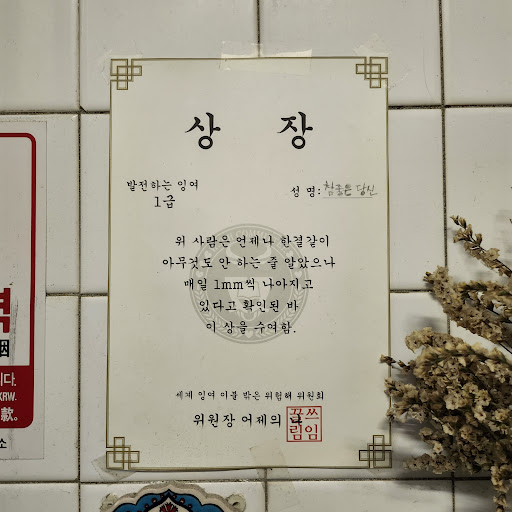 상 장
발전하는 잉여
1급
성 명: 참좋은 당신
위 사람은 언제나 한결같이
아무것도 안 하는 줄 알았으나
매일 1mm씩 나아지고
있다고 확인된 바
이 상을 수여함.
세계 잉여 이불 밖은 위험해 위원회
위원장 어제의
니다.
KRW.
款。
소